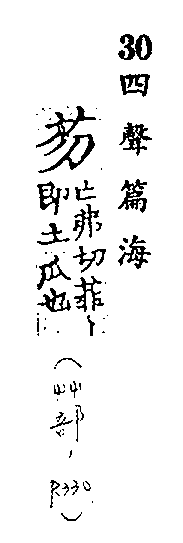 30四聲篇海
芴
亡弗切菲〻
即土瓜也
(艸部, P330)